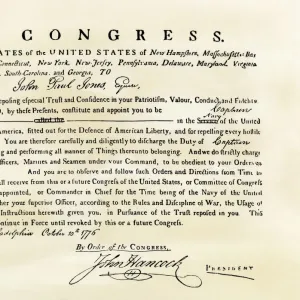 CONGRESS.
ATES of the UNITED STATES of New Hampshire, Massachusetts-Bay
Connecticut, New York, New Jersey, Pennsylvania, Delaware, Maryland, Virginia
South Carolina, and Georgia, TO
John Paul Jones, Esquire,
eposing especial Trust and Confidence in your Patriotism, Valour, Conduct, and Fidelity
O, by these Presents, constitute and appoint you to be Captain
Navy
called the in the Service of the United
America, fitted out for the Defence of American Liberty, and for repelling every hostile
You are therefore carefully and diligently to discharge the Duty of Captain
ng and performing all manner of Things thereunto belonging. And we do strictly charge
Officers, Marines and Seamen under your Command, to be obedient to your Orders as
And you are to observe and follow such Orders and Directions from Time to
ll receive from this or a future Congress of the United States, or Committee of Congress
appointed, or Commander in Chief for the Time being of the Navy of the United
ther your superior Officer, according to the Rules and Discipline of War, the Usage of
Instructions herewith given you, in Pursuance of the Trust reposed in you. This
ontinue in Force until revoked by this or a future Congress.
adelphia October 10th 1776
By Order of the CONGRESS,
John Hancock PRESIDENT